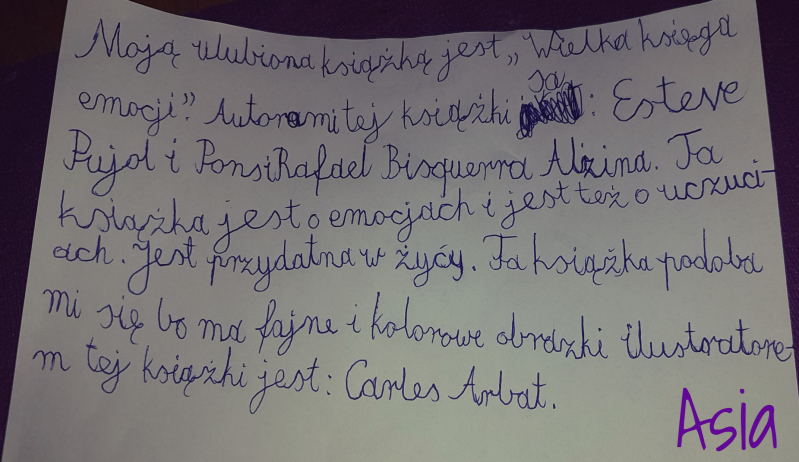 Moją ulubioną książką jest „Wielka księga
emocji”. Autorami tej książki są: Esteve
Pujol i Pons i Rafael Bisquerra Alzina. Ta
książka jest o emocjach i jest też o uczuci-
ach. Jest przydatna w żyćy. Ta książka podoba
mi się bo ma fajne i kolorowe obrazki ilustratore-
m tej książki jest: Carles Arbat.
Asia